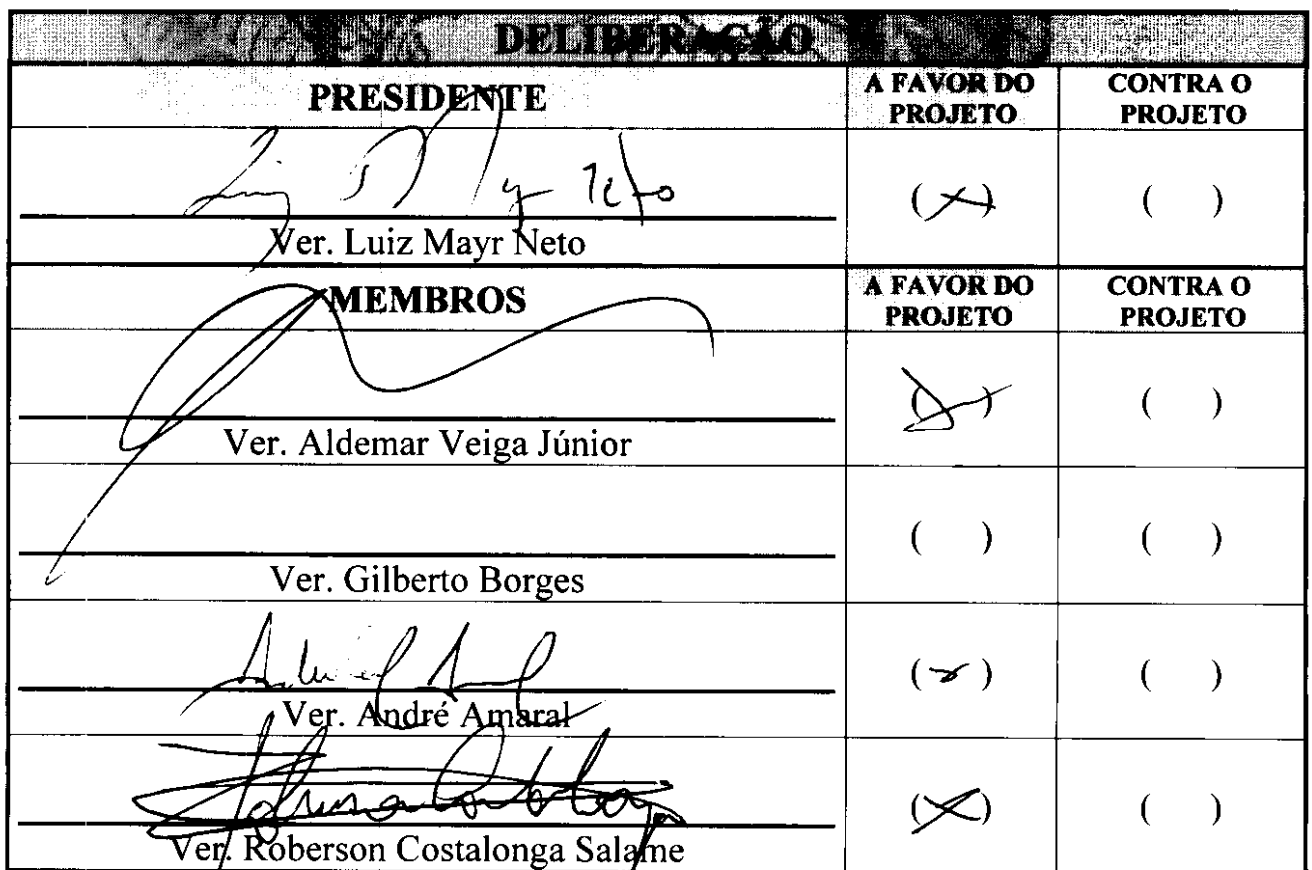 DELIBERAÇÃO
PRESIDENTE A FAVOR DO PROJETO CONTRA O PROJETO
( X ) ( )
Ver. Luiz Mayr Neto
MEMBROS A FAVOR DO PROJETO CONTRA O PROJETO
( X ) ( )
Ver. Aldemar Veiga Júnior
( ) ( )
Ver. Gilberto Borges
( x ) ( )
Ver. André Amaral
( X ) ( )
Ver. Roberson Costalonga Salame